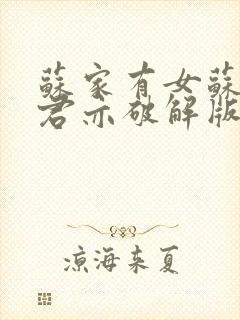 蘇家有女蘇
君亦破解版
涼海未夏